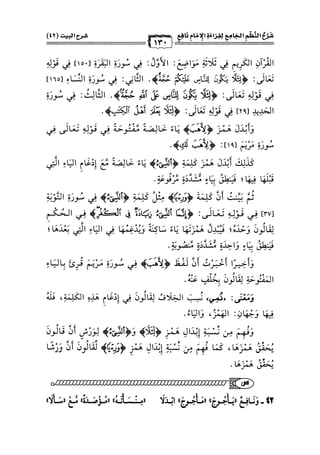 شَرْحُ النَّظْمِ الجَامِعِ لِقِرَاءَةِ الإِمَامِ نَافِعٍ
١٣٠
شرح البيت (٤٢)
القُرْآنِ الكَرِيمِ فِي ثَلَاثَةِ مَوَاضِعَ: الأَوَّلُ: فِي سُورَةِ البَقَرَةِ [١٥٠] فِي قَوْلِهِ
تَعَالَى: ﴿لِئَلَّا يَكُونَ لِلنَّاسِ عَلَيْكُمْ حُجَّةٌ﴾. الثَّانِي: فِي سُورَةِ النِّسَاءِ [١٦٥]
فِي قَوْلِهِ تَعَالَى: ﴿لِئَلَّا يَكُونَ لِلنَّاسِ عَلَى اللَّهِ حُجَّةٌ﴾. الثَّالِثُ: فِي سُورَةِ
الحَدِيدِ [٢٩] فِي قَوْلِهِ تَعَالَى: ﴿لِئَلَّا يَعْلَمَ أَهْلُ الْكِتَابِ﴾.
وَأَبْدَلَ هَمْزَ ﴿لِأَهَبَ﴾ يَاءً خَالِصَةً مَفْتُوحَةً فِي قَوْلِهِ تَعَالَى فِي
سُورَةِ مَرْيَمَ [١٩]: ﴿لِأَهَبَ لَكِ﴾.
كَذَلِكَ أَبْدَلَ هَمْزَ كَلِمَةِ ﴿النَّسِيءُ﴾ يَاءً خَالِصَةً مَعَ إِدْغَامِ اليَاءِ الَّتِي
قَبْلَهَا فِيهَا؛ فَيَنْطِقُ بِيَاءٍ مُشَدَّدَةٍ مَرْفُوعَةٍ.
ثُمَّ بَيَّنْتُ أَنَّ كَلِمَةَ ﴿وَرِءْيًا﴾ مِثْلُ كَلِمَةِ ﴿النَّسِيءُ﴾ فِي سُورَةِ التَّوْبَةِ
[٣٧] فِي قَوْلِهِ تَعَالَى: ﴿إِنَّمَا النَّسِيءُ زِيَادَةٌ فِي الْكُفْرِ﴾ فِي الحُكْمِ
لِقَالُونَ وَحْدَهُ؛ فَيُبْدِلُ هَمْزَتَهَا يَاءً سَاكِنَةً وَيُدْغِمُهَا فِي اليَاءِ الَّتِي بَعْدَهَا؛
فَيَنْطِقُ بِيَاءٍ وَاحِدَةٍ مُشَدَّدَةٍ مَنْصُوبَةٍ.
وَأَخِيرًا أَخْبَرْتُ أَنَّ لَفْظَ ﴿لِأَهَبَ﴾ فِي سُورَةِ مَرْيَمَ قُرِئَ بِاليَاءِ
المَفْتُوحَةِ لِقَالُونَ بِخُلْفٍ عَنْهُ.
وَمَعْنَى: «نُمِي» نُسِبَ الخِلَافُ لِقَالُونَ فِي إِدْغَامِ هَذِهِ الكَلِمَةِ، فَلَهُ
فِيهَا وَجْهَانِ: الهَمْزُ، وَاليَاءُ.
وَفُهِمَ مِنْ نِسْبَةِ إِبْدَالِ هَمْزِ ﴿لِئَلَّا﴾ وَ﴿النَّسِيءُ﴾ لِوَرْشٍ أَنَّ قَالُونَ
يُحَقِّقُ هَمْزَهَا، كَمَا فُهِمَ مِنْ نِسْبَةِ إِبْدَالِ هَمْزِ ﴿وَرِءْيًا﴾ لِقَالُونَ أَنَّ وَرْشًا
يُحَقِّقُ هَمْزَهَا.
ص